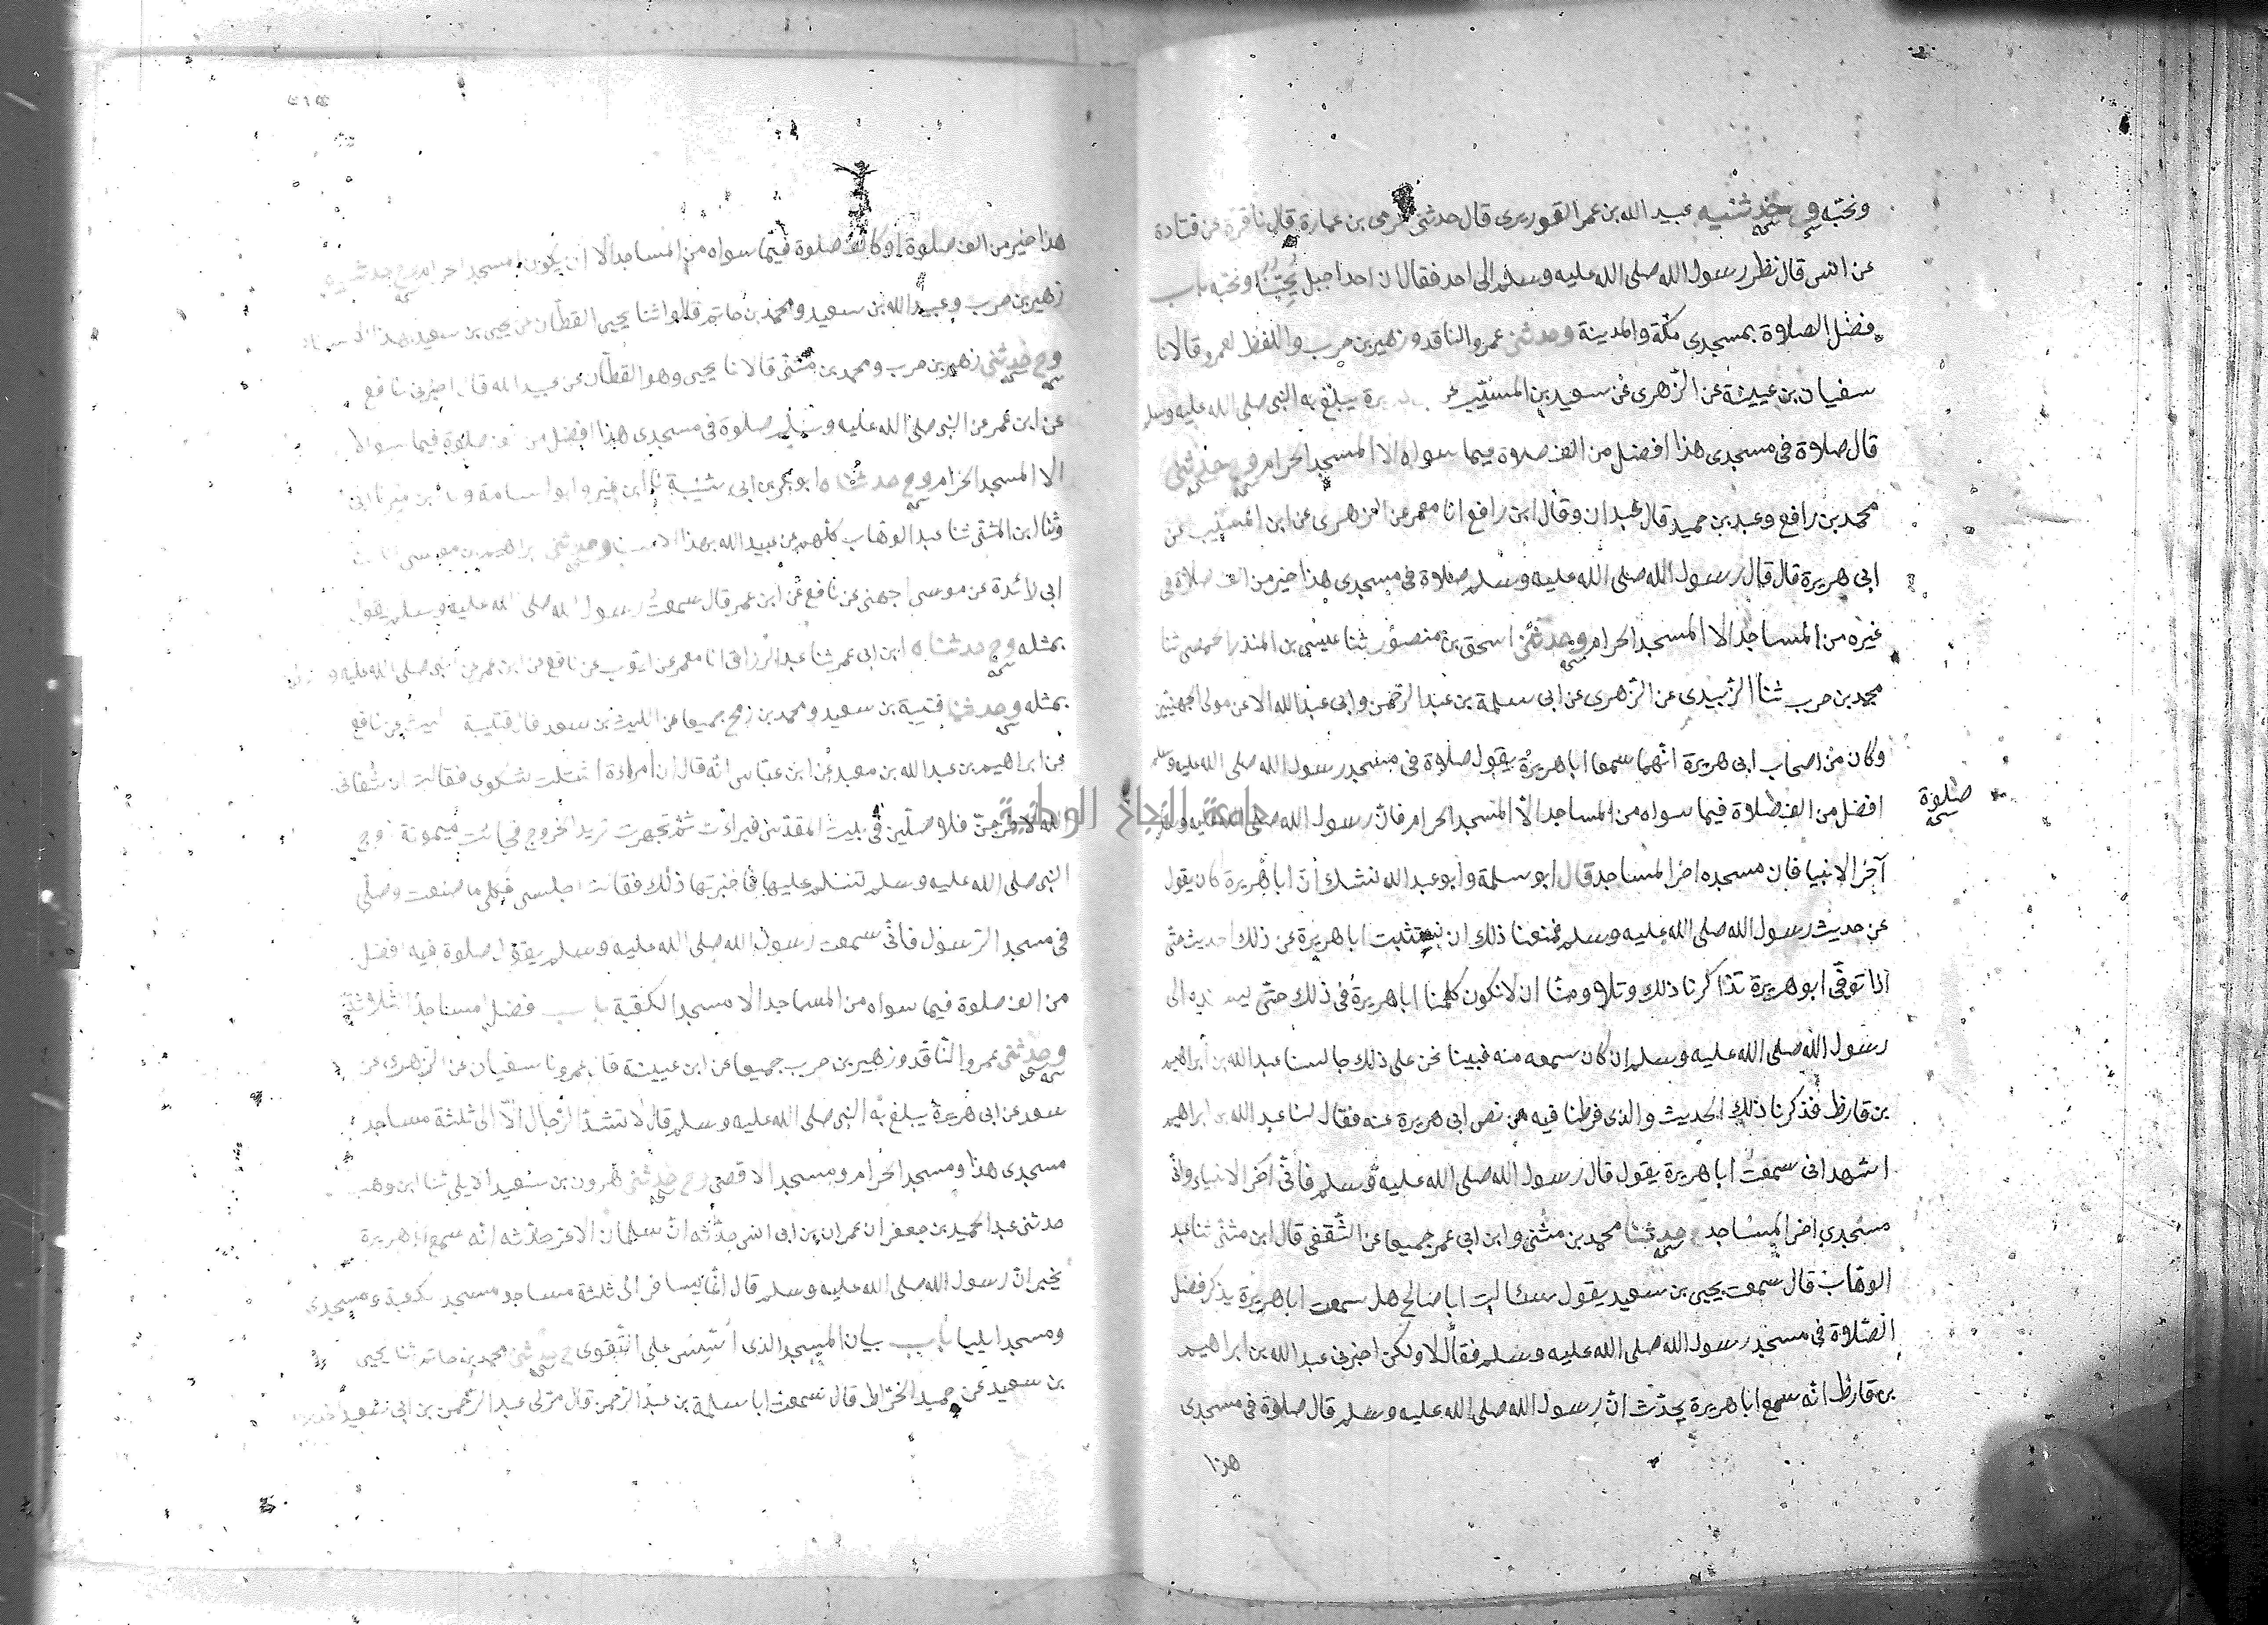 ونحبه وحدثنيه عبيد الله بن عمر القوريرى قال حدثنى حرمى بن عمارة قال نا قرة عن قتادة
عن انس قال نظر رسول الله صلى الله عليه وسلم الى احد فقال ان احدا جبل يحبنا ونحبه باب
فضل الصلاة بمسجدى مكة والمدينة وحدثنى عمرو الناقد وزهير بن حرب واللفظ لعمرو قالا نا
سفيان بن عيينة عن الزهرى عن سعيد بن المسيب يبلغ به النبى صلى الله عليه وسلم
قال صلاة فى مسجدى هذا افضل من الف صلاة فيما سواه الا المسجد الحرام وحدثنى
محمد بن رافع وعبد بن حميد قال عبد انا وقال ابن رافع انا معمر عن الزهرى عن ابن المسيب عن
ابى هريرة قال قال رسول الله صلى الله عليه وسلم صلاة فى مسجدى هذا خير من الف صلاة فى
غيره من المساجد الا المسجد الحرام وحدثنى اسحق بن منصور ثنا عيسى بن المنذر الحمصى ثنا
محمد بن حرب ثنا الزبيدى عن الزهرى عن ابى سلمة بن عبد الرحمن وابى عبد الله الاغر مولى الجهنيين
وكان من اصحاب ابى هريرة انهما سمعا ابا هريرة يقول صلاة فى مسجد رسول الله صلى الله عليه وسلم
افضل من الف صلاة فيما سواه من المساجد الا المسجد الحرام فان رسول الله صلى الله عليه وسلم
صلوة
آخر الانبيا فان مسجده اخر المساجد قال ابو سلمة وابو عبد الله نشك ان ابا هريرة كان يقول
عن حديث رسول الله صلى الله عليه وسلم فمنعنا ذلك ان نستثبت ابا هريرة عن ذلك الحديث حتى
اذا توفى ابو هريرة تذاكرنا ذلك وتلاومنا ان لا نكون كلمنا ابا هريرة فى ذلك حتى يسنده الى
رسول الله صلى الله عليه وسلم ان كان سمعه منه فبينا نحن على ذلك جالسنا عبد الله بن ابراهيم
بن قارظ فذكرنا ذلك الحديث والذى فرطنا فيه من نص ابى هريرة عنه فقال لنا عبد الله بن ابراهيم
اشهد انى سمعت ابا هريرة يقول قال رسول الله صلى الله عليه وسلم فانى اخر الانبياء وان
مسجدى اخر المساجد حدثنا محمد بن مثنى وابن ابى عمر جميعا عن الثقفى قال ابن مثنى ثنا عبد
الوهاب قال سمعت يحيى بن سعيد يقول سئالت ابا صالح هل سمعت ابا هريرة يذكر فضل
الصلاة فى مسجد رسول الله صلى الله عليه وسلم فقال لا ولكن اخبرنى عبد الله بن ابراهيم
بن قارظ انه سمع ابا هريرة يحدث ان رسول الله صلى الله عليه وسلم قال صلاة فى مسجدى
هذا
هذا خير من الف صلوة او كالف صلوة فيما سواه من المساجد الا ان يكون المسجد الحرام وحدثنيه
زهير بن حرب وعبيد الله بن سعيد ومحمد بن حاتم قالوا ثنا يحيى القطان عن يحيى بن سعيد بهذا
وحدثنى زهير بن حرب ومحمد بن مثنى قالا نا يحيى وهو القطان عن عبيد الله قال اخبرنى نافع
عن ابن عمر عن النبى صلى الله عليه وسلم صلوة فى مسجدى هذا افضل من الف صلوة فيما سواه
الا المسجد الحرام وحدثناه ابو بكر بن ابى شيبة نا ابن نمير وابو اسامة ابن نمير نا ابى
وثنا ابن المثنى ثنا عبد الوهاب كلهم عن عبيد الله بهذا الاسناد وحدثنى ابراهيم بن موسى
ابى زائدة عن موسى الجهنى عن نافع عن ابن عمر قال سمعت رسول الله صلى الله عليه وسلم يقول
بمثله وحدثناه ابن ابى عمر ثنا عبد الرزاق انا معمر عن ايوب عن نافع عن ابن عمر عن النبى صلى الله عليه
بمثله وحدثنا قتيبة بن سعيد ومحمد بن رمح جميعا عن الليث بن سعد قال قتيبة ليث عن نافع
عن ابراهيم بن عبد الله بن معبد عن ابن عباس انه قال ان امراءة اشتكت شكوى فقالت ان شفانى
الله لاخرجن فلاصلين فى بيت المقدس فبراءت ثم تجهزت تريد الخروج فجائت ميمونة زوج
النبى صلى الله عليه وسلم تسلم عليها فاخبرتها ذلك فقالت اجلسى فكلى ما صنعت وصلى
فى مسجد الرسول فانى سمعت رسول الله صلى الله عليه وسلم يقول صلوة فيه افضل
من الف صلوة فيما سواه من المساجد الا مسجد الكعبة باب فضل المساجد الثلاثة
وحدثنى عمرو الناقد وزهير بن حرب جميعا عن ابن عيينة قال عمرو نا سفيان عن الزهرى عن
سعيد عن ابى هريرة يبلغ به النبى صلى الله عليه وسلم قال لا تشد الرحال الا الى ثلثة مساجد
مسجدى هذا ومسجد الحرام ومسجد الاقصى وحدثنى هرون بن سعيد الايلى ثنا ابن وهب
حدثنى عبد الحميد بن جعفر ان عمران بن ابى انس حدثه ان سلمان الاغر حدثه انه سمع ابا هريرة
يخبر ان رسول الله صلى الله عليه وسلم قال انما يسافر الى ثلثة مساجد مسجد الكعبة ومسجدى
ومسجد ايليا باب بيان المسجد الذى اسس على التقوى حدثنى محمد بن حاتم ثنا يحيى
بن سعيد عن حميد الخراط قال سمعت ابا سلمة بن عبد الرحمن قال مر بى عبد الرحمن بن ابى سعيد
جامعة النجاح الوطنية